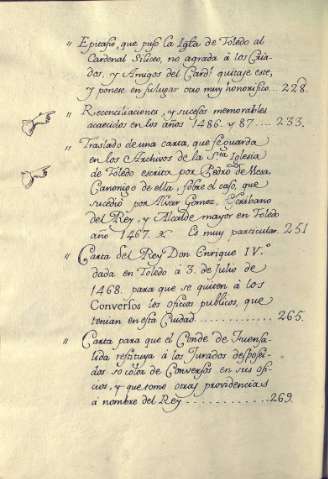 " Epitafio, que puso la Iglã de Toledo al
Cardenal Siliceo, no agrada à los Criã
dos, y Amigos del Cardl quitase este,
y ponese en su lugar otro muy honorifico... 228.
" Reconciliaciones, y sucesos memorables
acaecidos en los años 1486. y 87.... 233.
" Traslado de una carta, que se guarda
en los Archivos de la Sta Iglesia
de Toledo escrita por Pedro de Mesa
Canonigo de ella, sobre el caso, que
sucedió por Alvar Gomez, Escribano
del Rey, y Alcalde mayor en Toledo
año 1467. Es muy particular. 251
" Carta del Rey Don Enrique IV.º
dada en Toledo a 3. de Julio de
1468. para que se quiten à los
Conversos los oficios publicos, que
tenian en esta Ciudad............ 265.
" Carta para que el Conde de Fuensa-
lida restituya à los Jurados desposei-
dos so color de Conversos en sus ofi-
cios, y que tome otras providencias
à nombre del Rey............ 269.